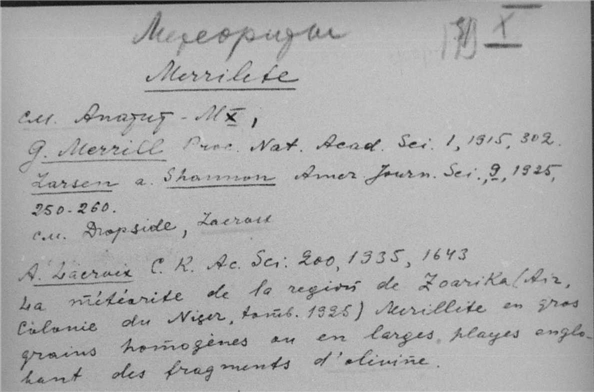 Метеориты X
Merrilete
см. Апатит - MX,
G. Merrill Proc. Nat. Acad. Sci. 1, 1915, 302.
Larsen a. Shannon Amer. Journ. Sci., 9, 1925,
250-260.
см. Diopside, Lacroix
A. Lacroix C. R. Ac. Sci. 200, 1935, 1643
La météorite de la region de Zoarika (Air,
Colonie du Niger, tomb. 1925) Merillite en gros
grains homogènes ou en larges playes englo-
bant des fragments d'olivine.